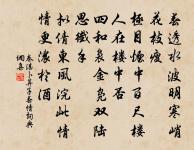 春透水波明寒峭
花枝瘦
極目煙中百尺樓
人在樓中否
四和裊金鳧雙陸
思纖手
擬倩東風浣此情
情更濃於酒
秦湛卜算子春情詞典
網